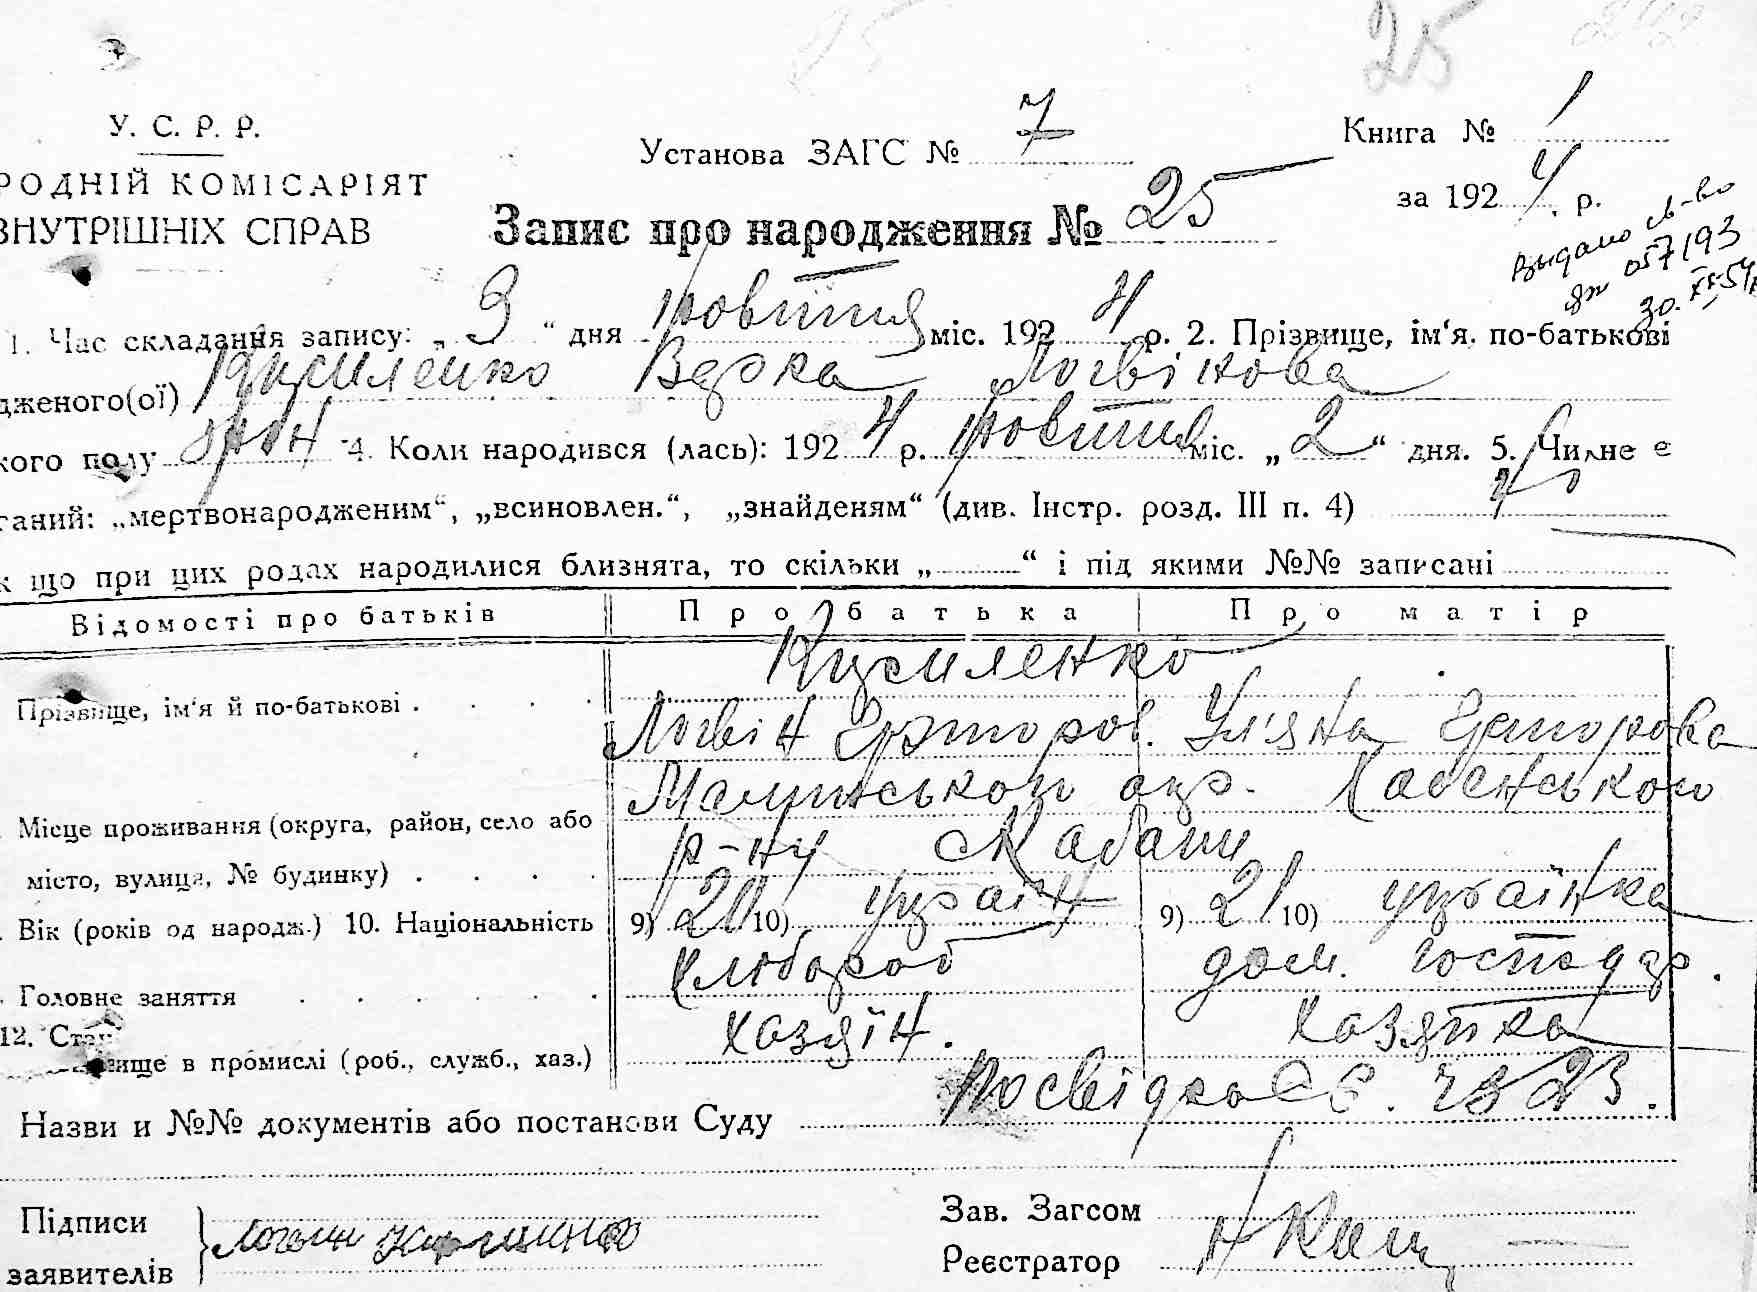 25
У. С. Р. Р.
РОДНІЙ КОМІСАРІЯТ
ВНУТРІШНІХ СПРАВ
Установа ЗАГС № 7
Книга № 1
за 1924 р.
Запис про народження № 25
Выдано св-во
057193
30.
1. Час складання запису: „3“ дня жовтня міс. 1924 р. 2. Прізвище, ім‘я, по-батькові
дженого(ої) Кузьменко Логвінова
кого полу 4. Коли народився (лась): 1924 р. жовтня міс. „2“ дня. 5. Чи не є
ганий: „мертвонародженим“, „всиновлен.“, „знайденям“ (див. Інстр. розд. III п. 4)
к що при цих родах народилися близнята, то скільки „ “ і під якими №№ записані
Відомості про батьків Про батька Про матір
Прізвище, ім‘я й по-батькові
Логвін Григоров. Уляна
Місце проживання (округа, район, село або
місто, вулиця, № будинку)
окр. Хабенського
р-ну с Кабани
Вік (років од народж.) 10. Національність 9) 20 10) україн 9) 21 10) українка
Головне заняття хлібороб дом. господар.
12. Стан
вище в промислі (роб., служб., хаз.) хазяїн. хазяйка
Назви и №№ документів або постанови Суду Посвідка 23.
Підписи
заявителів Логвин
Зав. Загсом
Реєстратор